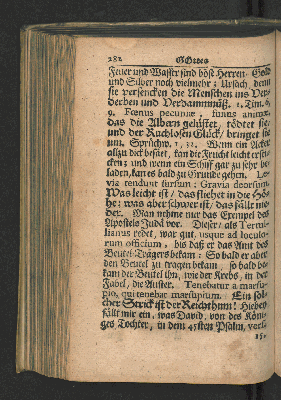 282 GOttes
Feuer und Wasser sind böse Herren. Gold
und Silber noch vielmehr; Ursach, denn
sie versencken die Menschen ins Ver-
derben und Verdammnüß. 1. Tim. 6,
9. Fœnus pecuniæ, funus animæ,
das die Albern gelüstet, tödtet sie,
und der Ruchlosen Glück, bringet sie
um. Sprüchw. 1, 32. Wenn ein Acker
allzu dick besäet, kan die Frucht leicht ersti-
cken; und wenn ein Schiff gar zu sehr be-
laden, kan es bald zu Grunde gehen. Le-
via tendunt sursum: Gravia deorsum.
Was leicht ist / das fliehet in die Hö-
he: was aber schwer ist / das fällt nie-
der. Man nehme nur das Exempel des
Apostels Judä vor. Dieser / als Terul-
lianus redet, war gut, usque ad loculo-
rum officium, bis daß er das Amt des
Beutel-Trägers bekam: So bald er aber
den Beutel zu tragen bekam, so bald be-
kam der Beutel ihn, wie der Krebs, in der
Fabel, die Auster. Tenebatur a marsu-
pio, qui tenebat marsupium. Ein sol-
cher Strick ist der Reichthum! Hiebey
fällt mir ein, was David, von des Köni-
ges Tochter, in dem 45sten Psalm, verf.